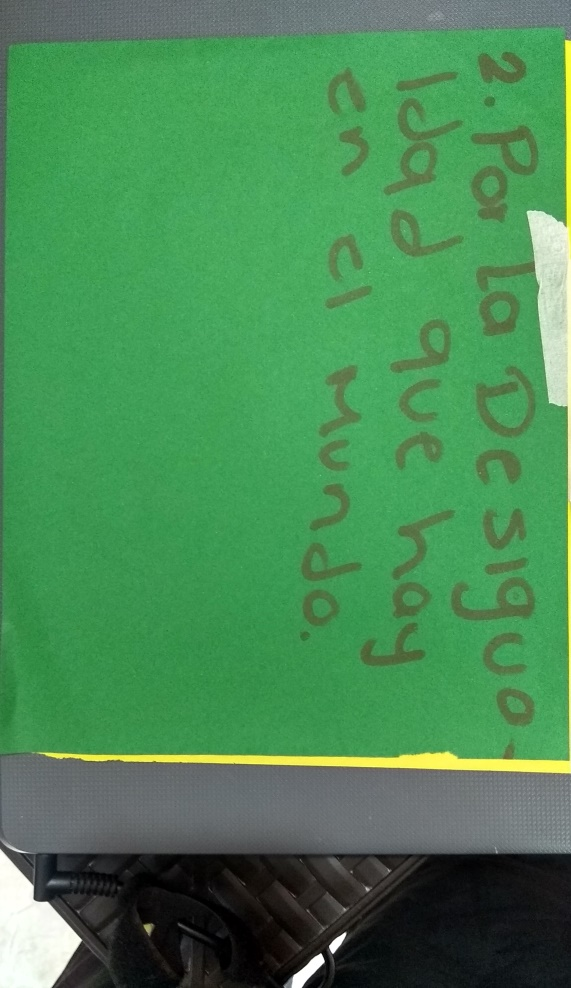 2. Por la Desigua-
ldad que hay
en el mundo.